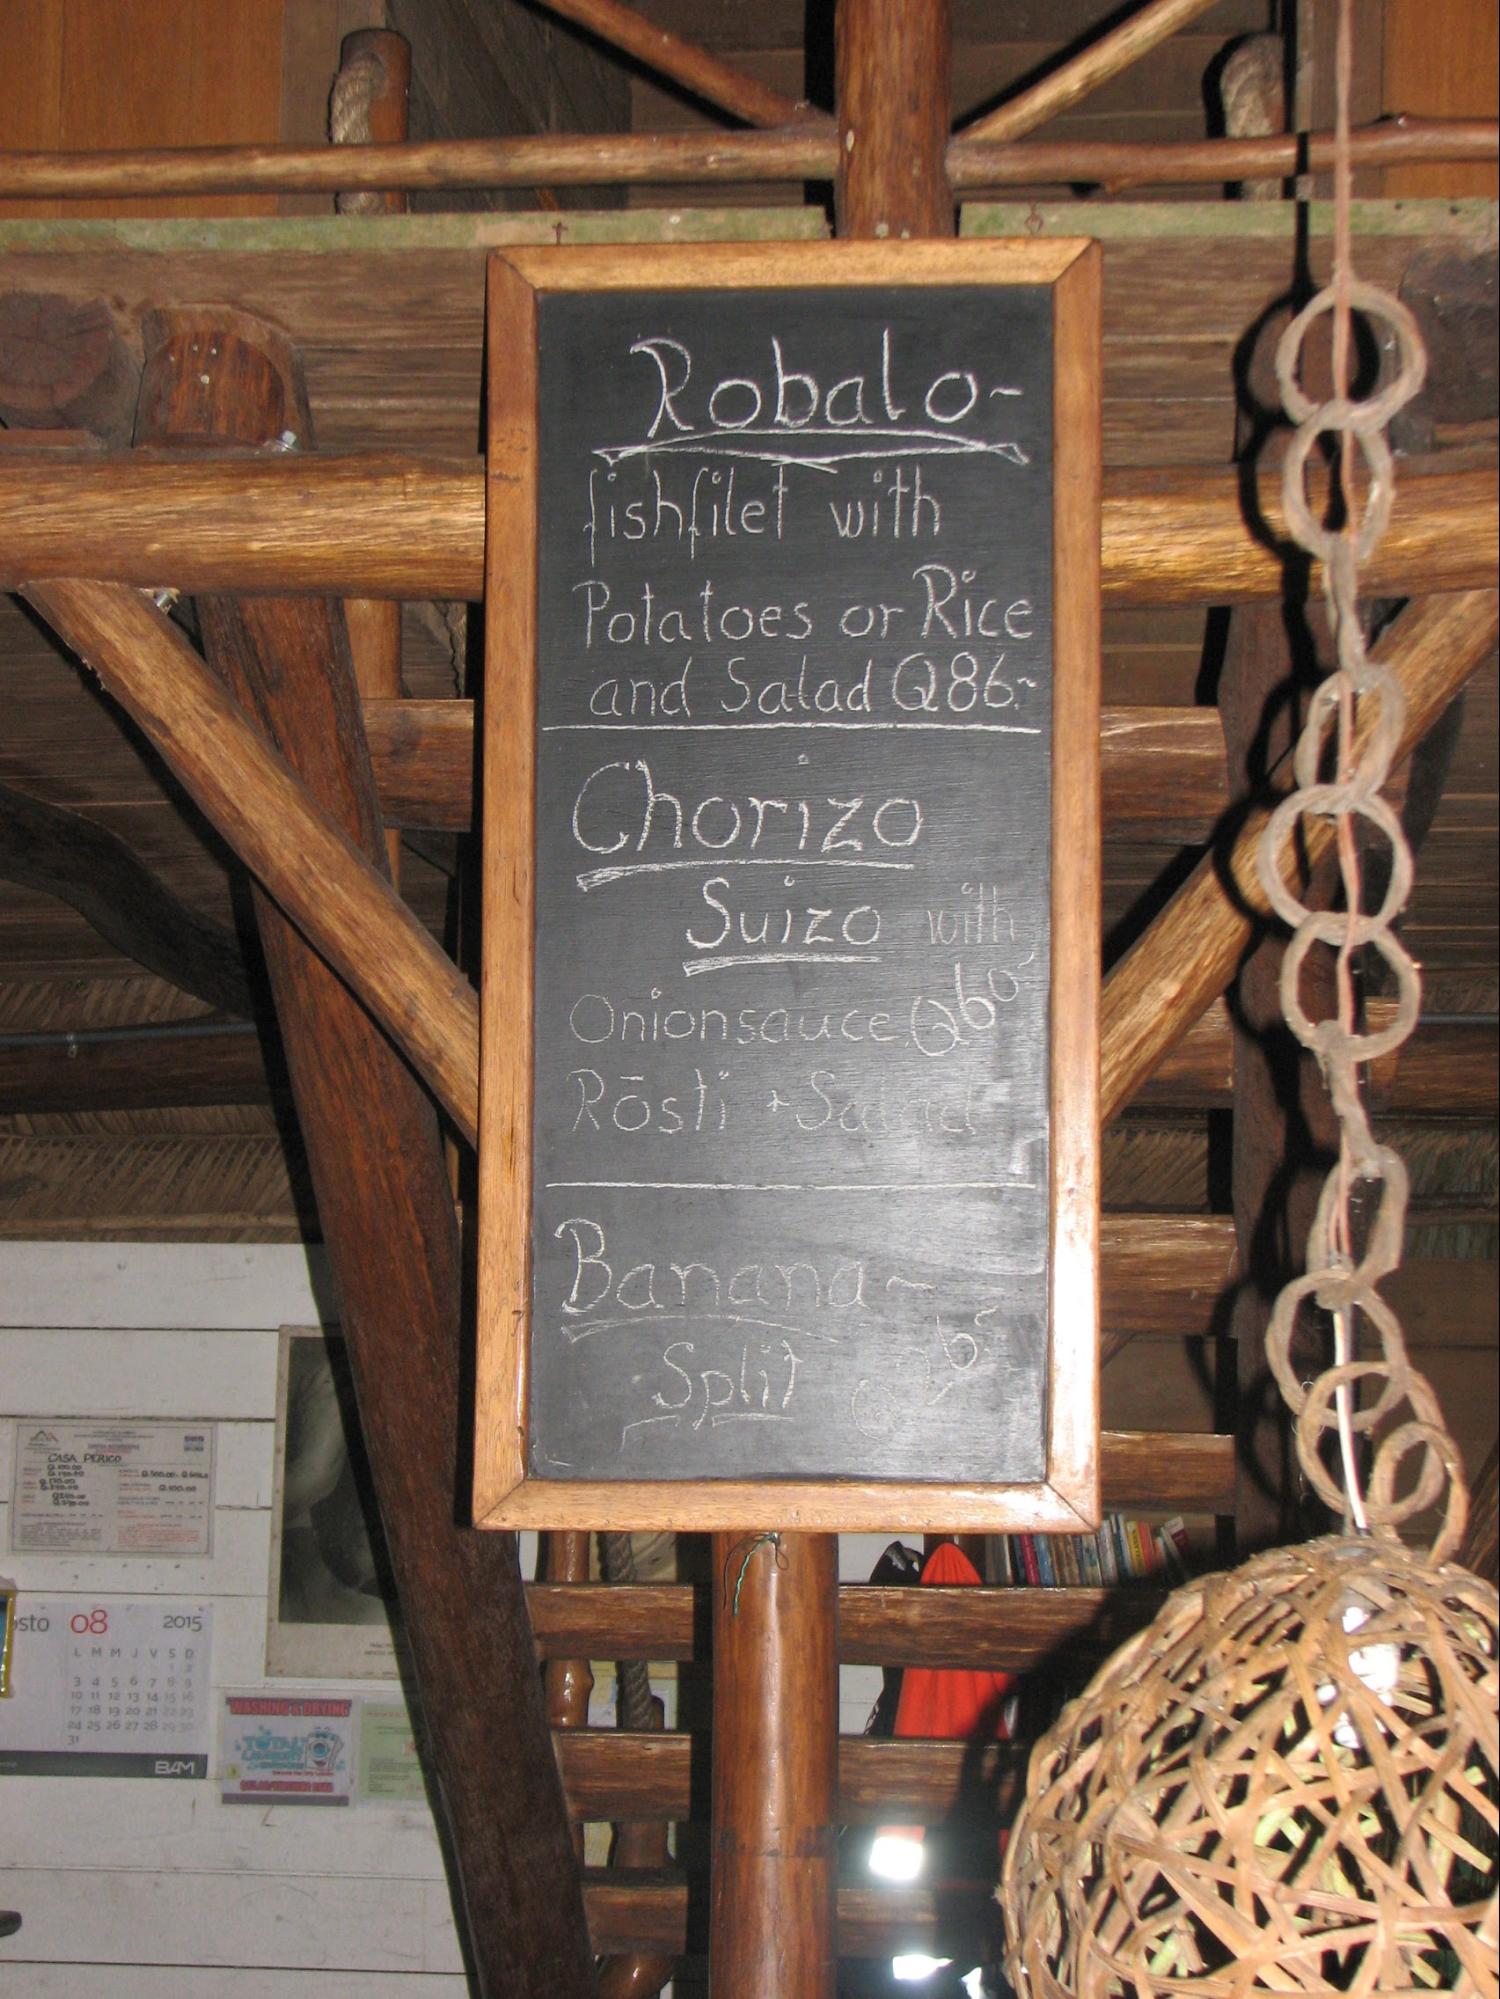 Robalo-
fishfilet with
Potatoes or Rice
and Salad Q86.-
Chorizo
Suizo with
Onionsauce Q60.-
Rösti + Salad
Banana-
Split Q26.-
CASA PERICO
Q.100.00
08
2015
L M M J V S D
1 2
3 4 5 6 7 8 9
10 11 12 13 14 15 16
17 18 19 20 21 22 23
24 25 26 27 28 29 30
31
BAM
WASHING & DRYING
TOTAL